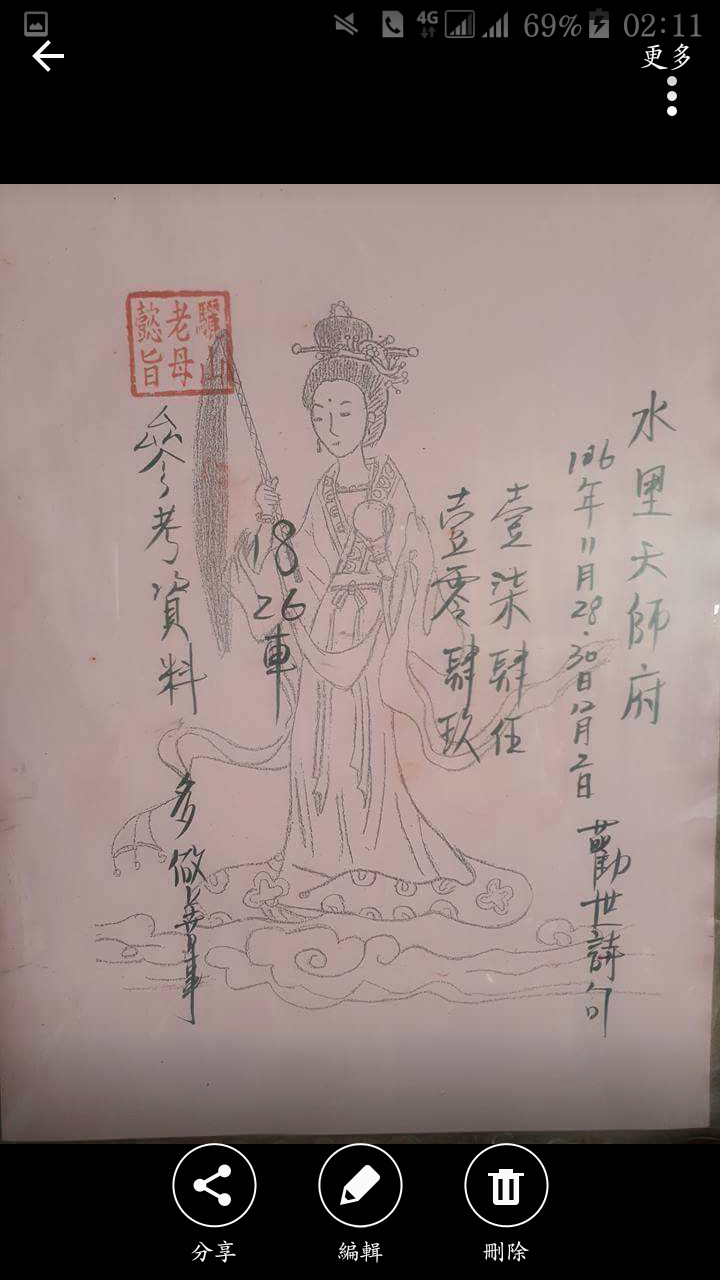 4G 69% 02:11
更多
水里天師府
106年11月28.30日12月2日 勸世詩句
壹柒肆伍
壹零肆玖
18
26
車
驪山
老母
懿旨
參考資料
多做善事
分享
編輯
刪除